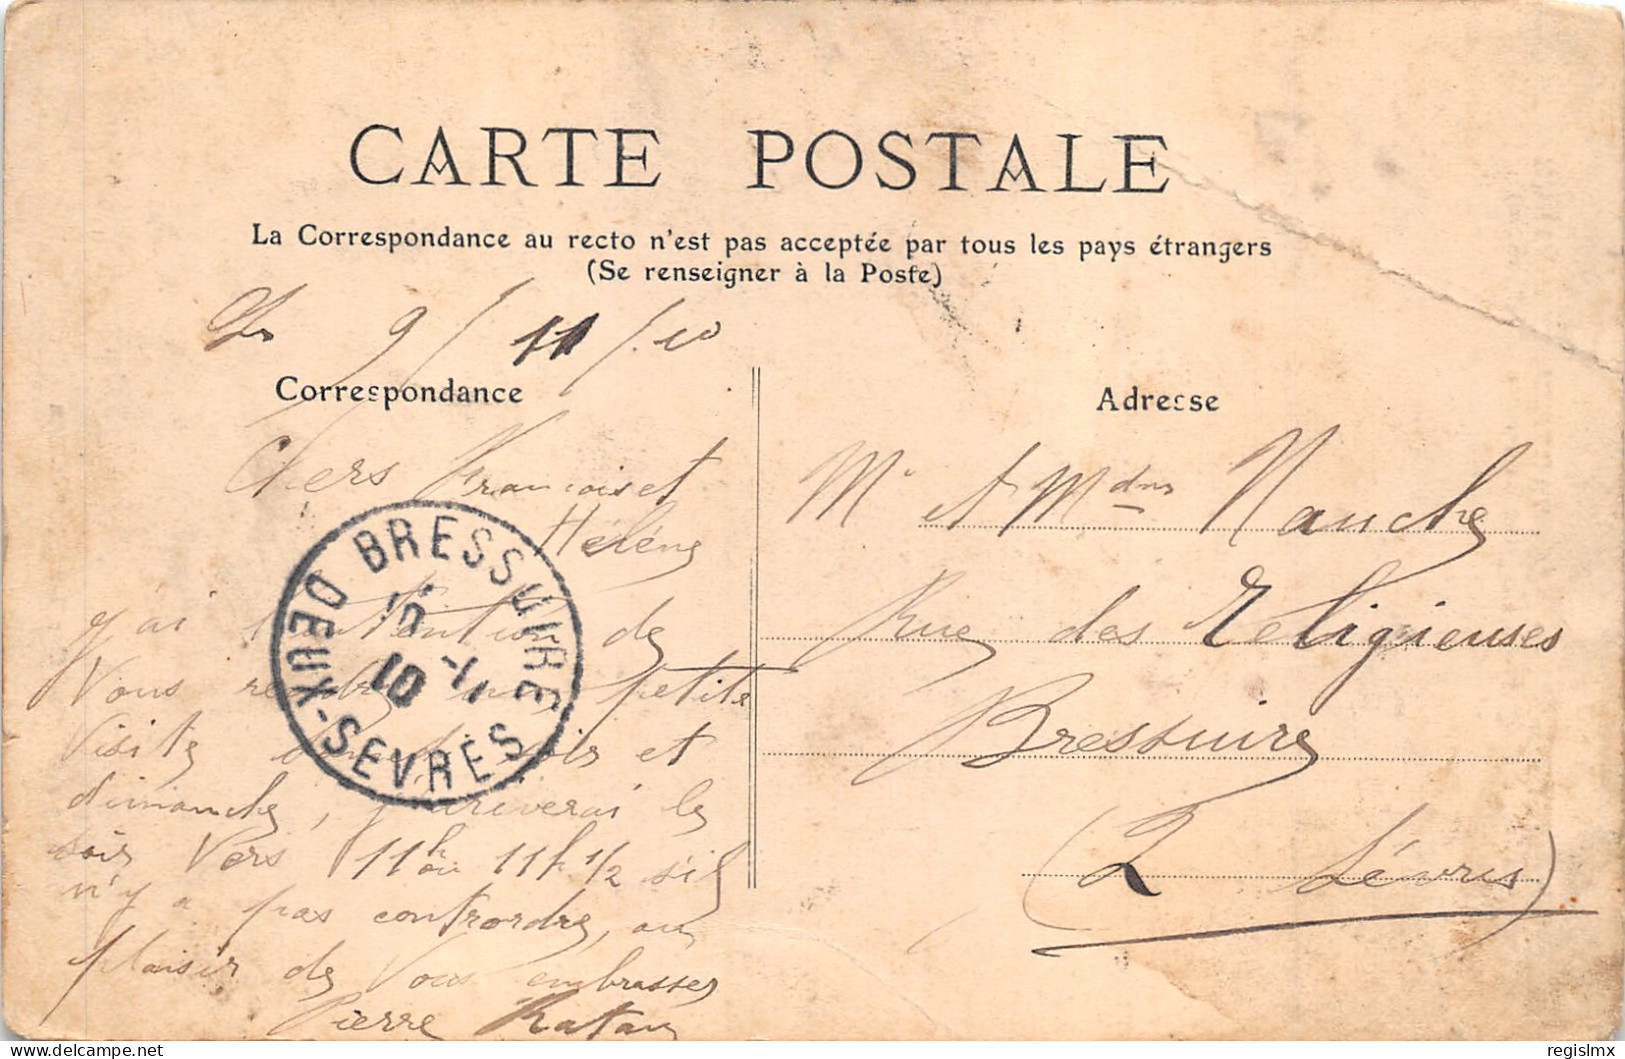 CARTE POSTALE
La Correspondance au recto n'est pas acceptée par tous les pays étrangers
(Se renseigner à la Poste)
9/11/10
Correspondance
Chers François et
Hélène
j'ai l'intention de
Vous rendre une petite
Visite samedi soir et
dimanche, j'arriverai le
soir Vers 11h ou 11h 1/2 s'il
n'y a pas contrordre, au
plaisir de Vous embrasser
Pierre
BRESSUIRE
10 -11
10
DEUX-SEVRES
Adresse
Mr et Mdme
Rue des Religieuses
Bressuire
(2 Sèvres)
regislmx